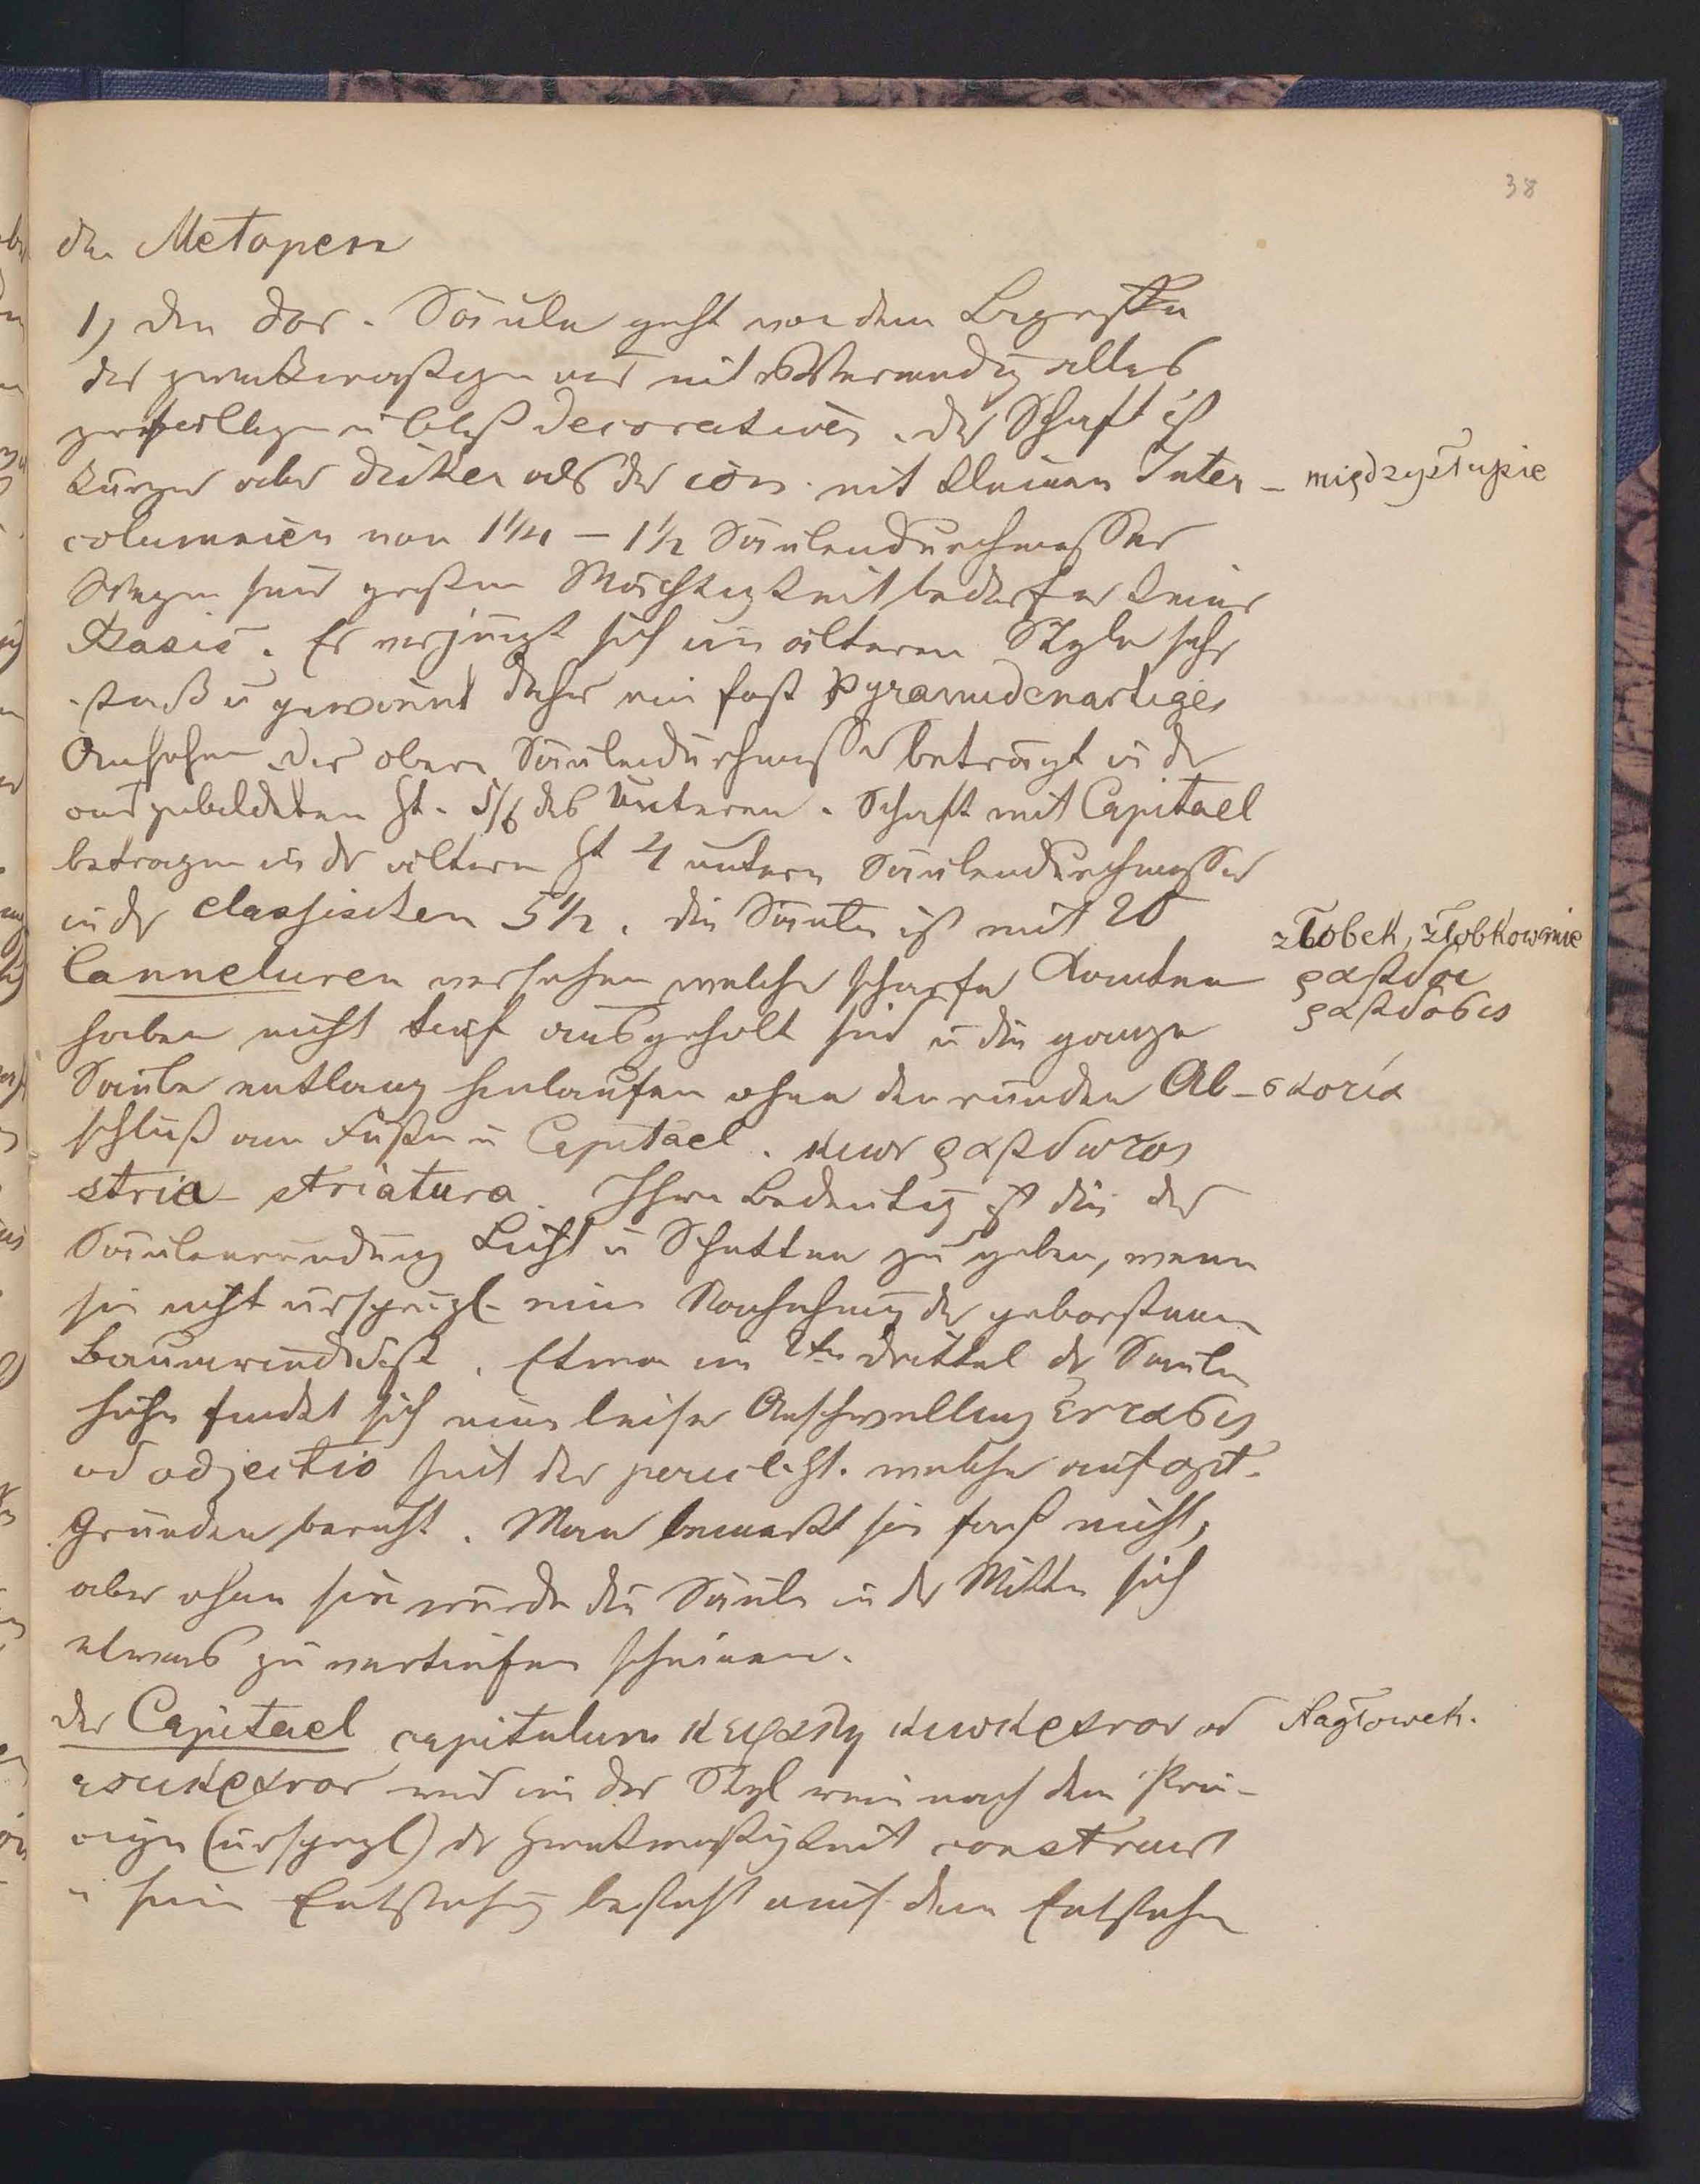 38
der Metopen
1) Der dor. Säule geht von dem Begriffe
des zweckmäßigen aus mit Vermeidg alles
zufälligen u bloß decorativen. Der Schaft ist
kürzer aber dicker als der ion. mit kleinen Inter- międzysłupie
columnien von 1¼ – 1½ Säulendurchmesser
Wegen seiner großen Mächtigkeit bedarf er keiner
Basis. Er verjüngt sich im älteren Style sehr
stark u gewinnt daher ein fast pyramidenartiges
Ansehen. Der obere Säulendurchmesser beträgt in der
ausgebildeten Zt. 5/6 des unteren. Schaft mit Capitael
betragen in der ältern Zt 4 untere Säulendurchmesser
in der classischen 5½. Die Säule ist mit 20 żłobek, żłobkowanie
Canneluren versehen welche scharfe Kanten ραβδοι
haben nicht tief ausgeholt sind u die ganze ραβδοσις
Säule entlang hinlaufen ohne den runden Ab- σκοτια
schluß am Fuße u Capitael. κιων ραβδωτος
stria striatura. Ihre Bedeutug ist die der
Säulenrundung Licht u Schatten zu geben, wenn
sie nicht ursprgl. eine Nachahmug der geborstenen
Baumrinde ist. Etwa im 2ten Drittel der Säulen
höhe findet sich eine leise Anschwellung εντασις
od adjectio seit der pericl. Zt. welche auf opt.
Gründen beruht. Man bemerkt sie fast nicht,
aber ohne sie würde die Säule in der Mitte sich
etwas zu vertiefen scheinen.
Der Capitael capitulum κεφαλη κιωκρανον od Nagłowek.
κιοκρανον wird im dor Styl rein nach dem Prin-
cipe (ursprgl) der Zweckmäßigkeit construirt
u sein Entstehug besteht aus dem Entstehen